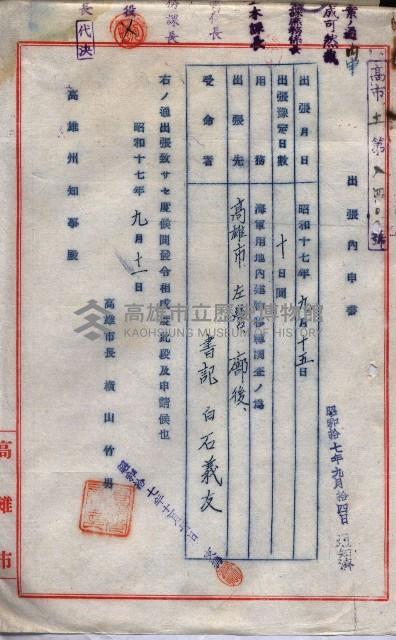 案ノ通內申
成可然哉
課庶務長
土木課長
代決
高市土第八四〇號
出張內申書
昭和拾七年九月拾四日
出張月日
昭和十七年九月十五日
出張豫定日數
十日間
用務
海軍用地內建物移轉調查ノ爲
出張先
高雄市左營、廍後、
受命者
書記 白石義友
右ノ通出張致サセ度候間發令相成度此段及申請候也
昭和十七年九月十一日
高雄市長 横山竹男
高雄州知事殿
高雄市
高雄市立歷史博物館
KAOHSIUNG MUSEUM OF HISTORY